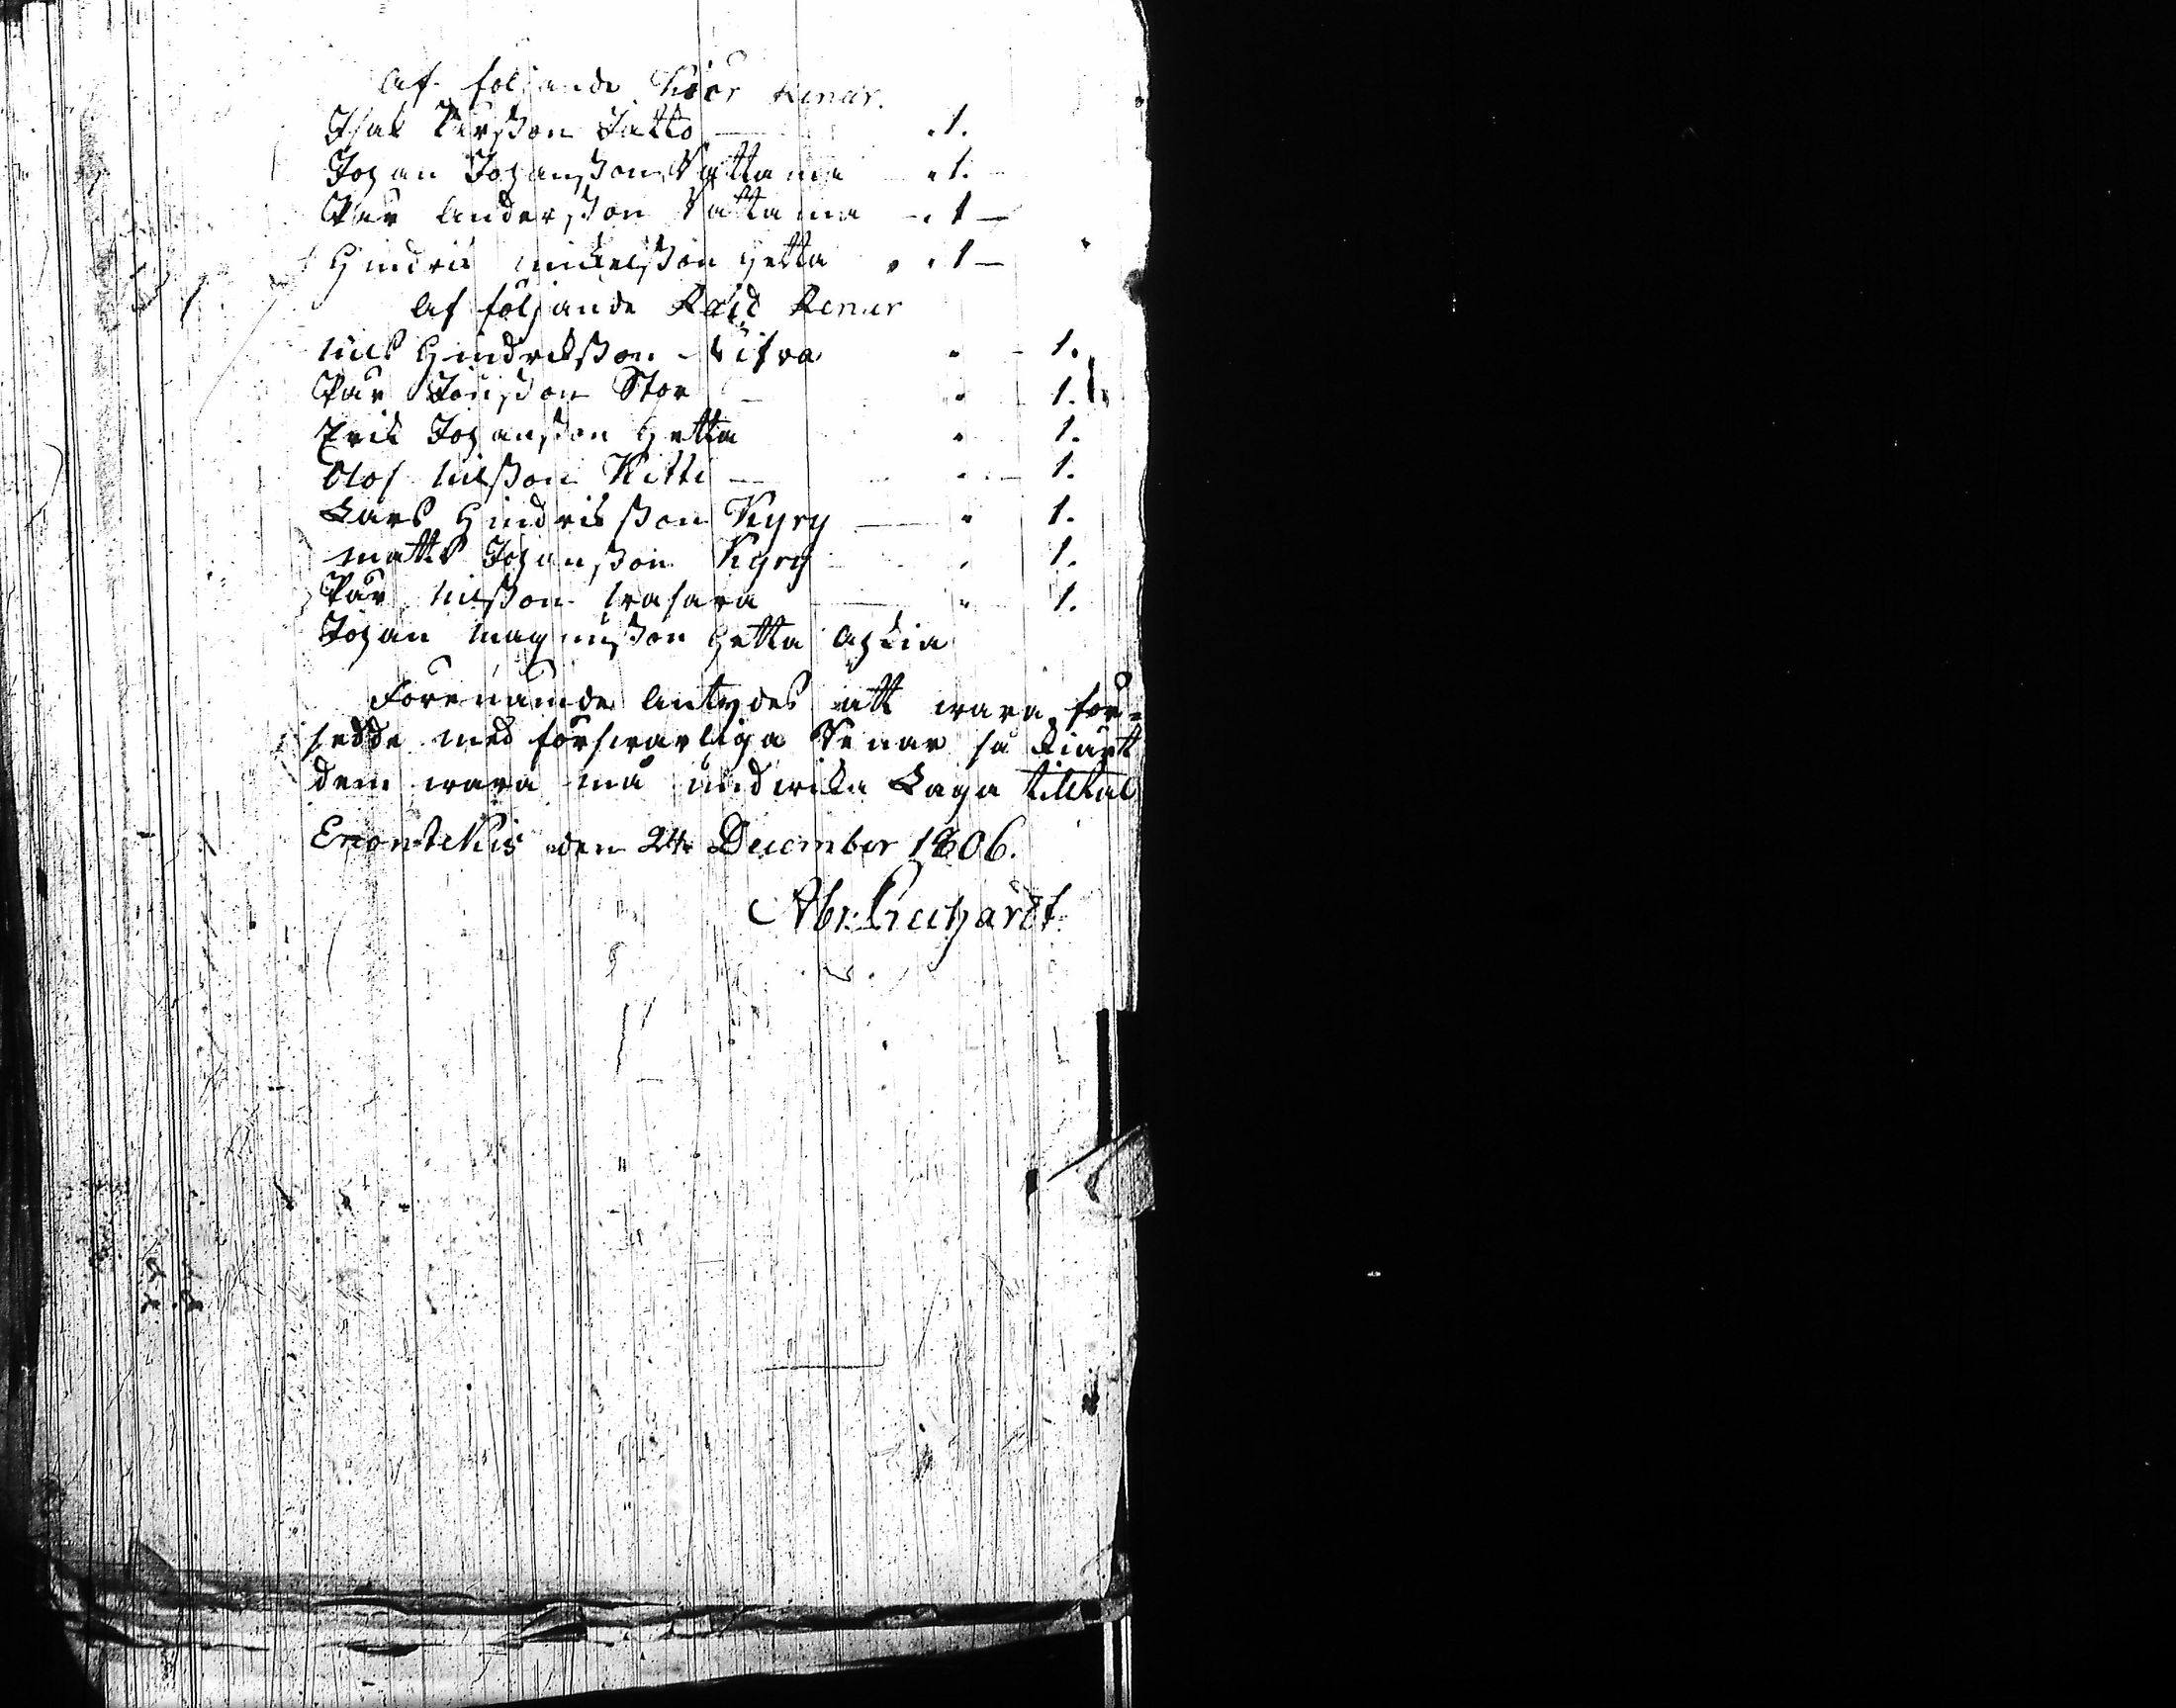 Af följande Kiör Renar.
Isak Pärsson Jatko — .1.
Johan Johansson Vattama — .1. —
Pär Andersson Vattama — .1 —
Hindrik Mickelsson Hetta . .1 —
Af följande Raid Renar
Nils Hindriksson — 1.
Pär Jönsson Stor — 1.
Erik Johansson Hetta 1.
Olof Nilsson Kitti — 1.
Lars Hindriksson Kyrö — 1.
Matts Johansson Kyrö 1.
Pär Nilsson 1.
Johan Magnusson Hetta
Förenämde Antydes att wara för=
sedde med försvarliga Renar så kiärt
dem wara må undwika Laga tilltal
Enontekis den 24 December 1806.
Abr: